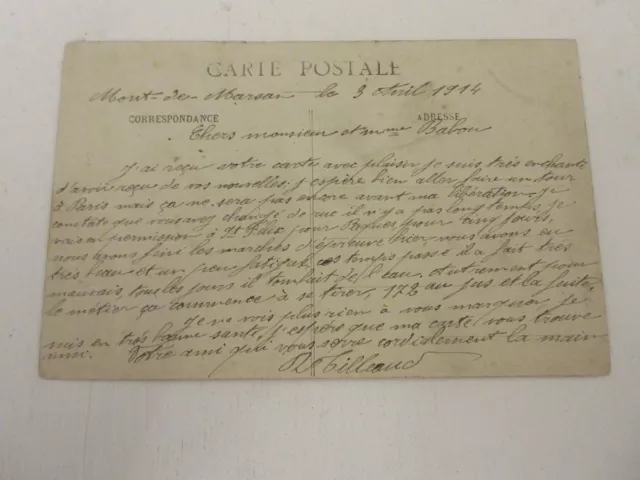 CARTE POSTALE
Mont-de-Marsan le 3 Avril 1914
CORRESPONDANCE ADRESSE
Chers monsieur et mme Babou
J'ai reçu votre carte avec plaisir je suis très enchanté
d'avoir reçu de vos nouvelles; j'espère bien aller faire un tour
à Paris mais ça ne sera pas encore avant ma libération je
constate que vous avez changé de rue il n'y a pas longtemps, je
vais en permission à St pour Paques pour cinq jours,
nous avons fini les marches d'épreuve hier nous avons eu
très beau et un peu fatigué, ces temps passé il a fait très
mauvais, tous les jours il tombait de l'eau. Autrement pour
le métier ça commence à se tirer, 172 au jus et la fuite.
Je ne vois plus rien à vous marquer je
suis en très bonne santé, j'espère que ma carte vous trouve
Votre ami qui vous serre cordialement la main